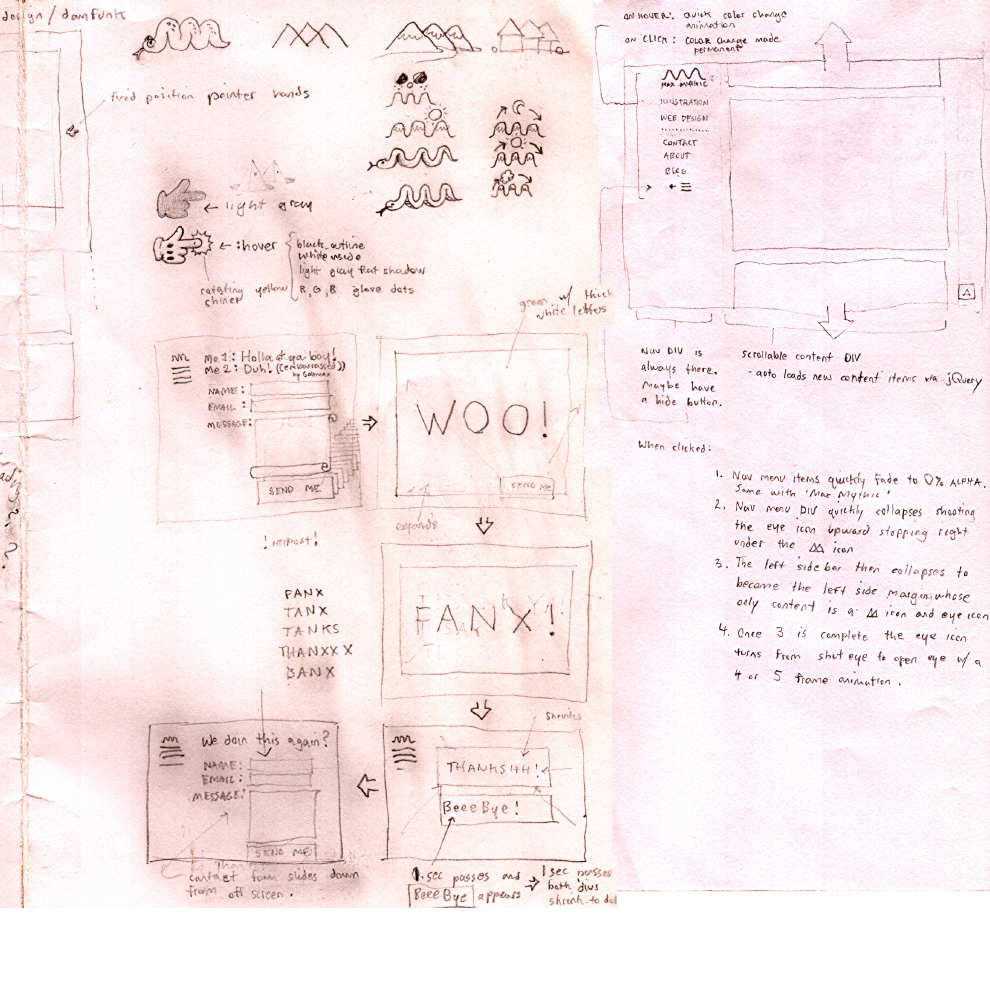 design / damfunk
fixed position pointer hands
← light gray
← :hover
black outline
white inside
light gray flat shadow
R, G, B glove dots
rotating yellow
shiner
green w/ thick
white letters
Me 1: Holla at ya boy!
Me 2: Duh! ((embarrassed))
NAME:
EMAIL:
MESSAGE:
SEND ME
WOO!
SEND ME
expands
FANX
TANX
TANKS
THANXX X
BANX
FANX!
shrinks
We doin this again?
NAME:
EMAIL:
MESSAGE:
SEND ME
THANKSHH!
BeeeBye!
contact form slides down
from off screen.
1 sec passes and
BeeeBye appears
1 sec passes
both divs
shrink to
ON HOVER: quick color change
animation
ON CLICK: COLOR change made
permanent
MAX MYTHIC
ILLUSTRATION
WEB DESIGN
CONTACT
ABOUT
BLOG
NAV DIV is
always there.
Maybe have
a hide button.
scrollable content DIV
- auto loads new content items via jQuery
When clicked:
1. Nav menu items quickly fade to 0% ALPHA.
Same with 'Max Mythic'
2. Nav menu DIV quickly collapses shooting
the eye icon upward stopping right
under the icon
3. The left sidebar then collapses to
become the left side margin whose
only content is a icon and eye icon
4. Once 3 is complete the eye icon
turns from shut eye to open eye w/ a
4 or 5 frame animation.